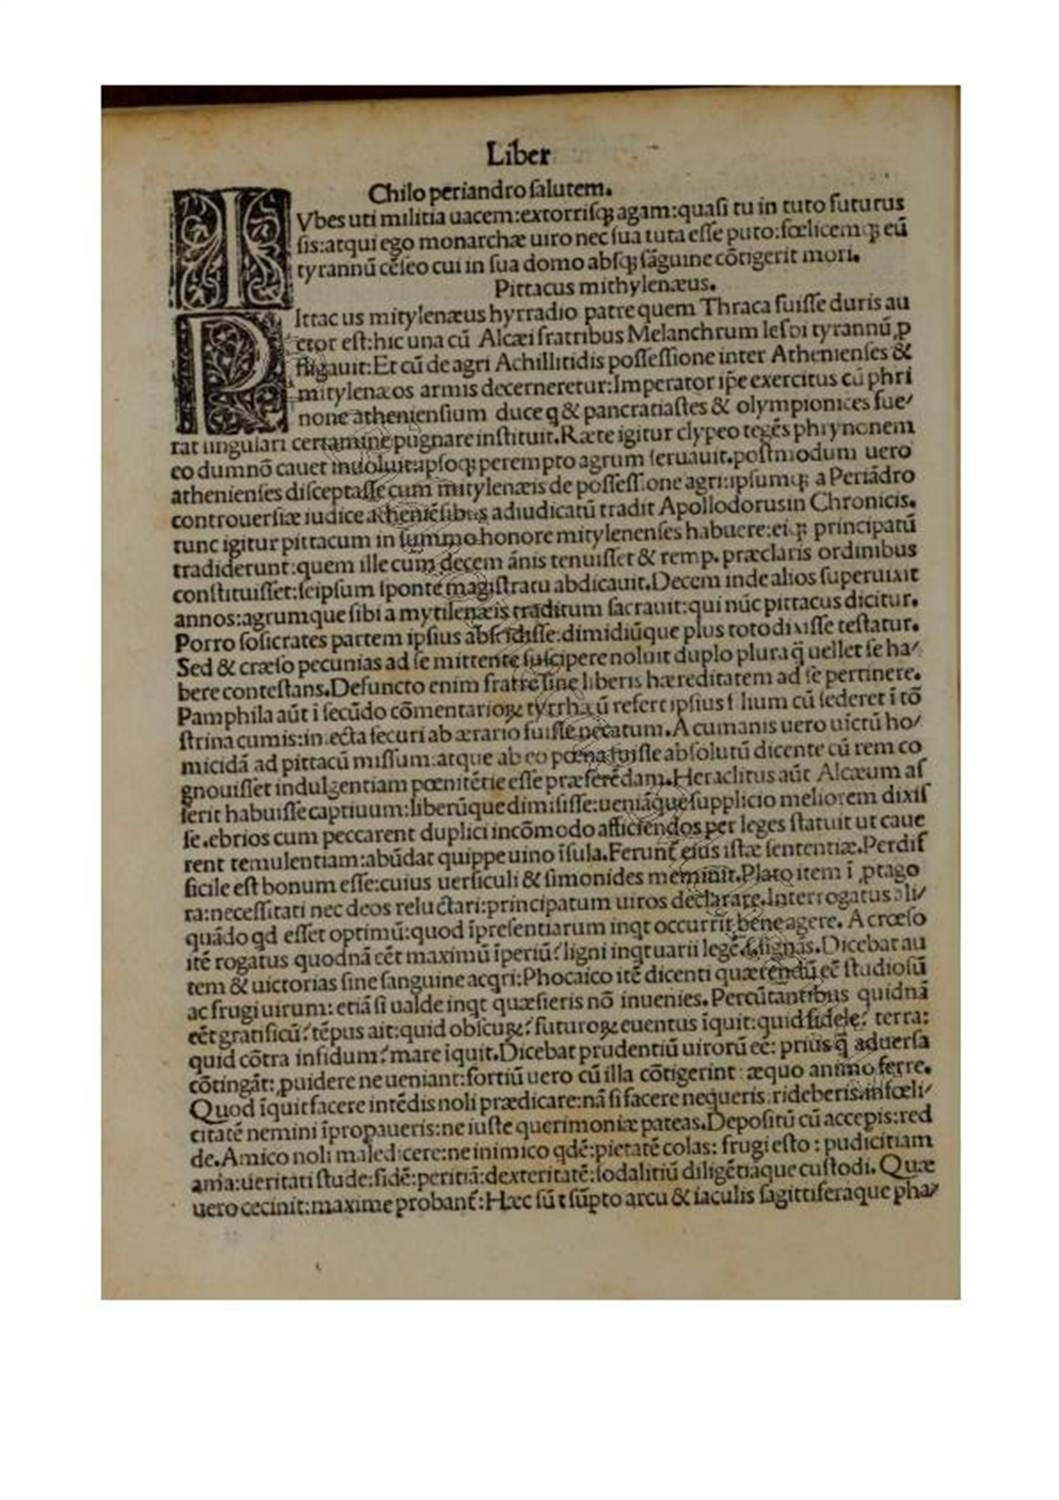 Liber
Chilo periandro ſalutem.
IVbes uti militia uacem:extorriſqꝫ agam:quaſi tu in tuto futurus
ſis:atqui ego monarchæ uiro nec ſua tuta eſſe puto:fœlicemqꝫ eū
tyrannū cēſeo cui in ſua domo abſqꝫ ſāguine cōtigerit mori.
Pittacus mithylenæus.
PIttacus mitylenæus hyrradio patre quem Thraca fuiſſe duris au
ctor eſt:hic una cū Alcæi fratribus Melanchrum leſbi tyrannū ꝓ
fligauit:Et cū de agri Achillitidis poſſeſſione inter Athenienſes &
mitylenæos armis decerneretur:Imperator ip̄e exercitus cū phri
none athenienſium duce q & pancratiaſtes & olympionices fue/
rat ſingulari certamine pugnare inſtituit.Ræte igitur clypeo tegēs phrynonem
eo dum nō cauet inuoluit:ipſoqꝫ perempto agrum ſeruauit.poſtmodum uero
athenienſes diſceptaſſe cum mitylenæis de poſſeſſione agri:ipſumqꝫ a Periādro
controuerſiæ iudice atheniēſibus adiudicatū tradit Apollodorus in Chronicis.
tunc igitur pittacum in ſummo honore mitylenenſes habuere:eiqꝫ principatū
tradiderunt:quem ille cum decem ānis tenuiſſet & remp. præclaris ordinibus
conſtituiſſet:ſeipſum ſponte magiſtratu abdicauit.Decem inde alios ſuperuixit
annos:agrumque ſibi a mytilenæis traditum ſacrauit:qui nūc pittacus dicitur.
Porro ſoſicrates partem ipſius abſcidiſſe:dimidiūque plus toto dixiſſe teſtatur.
Sed & cræſo pecunias ad ſe mittente ſuſcipere noluit duplo plura q̄ uellet ſe ha/
bere conteſtans.Defuncto enim fratre ſine liberis hæreditatem ad ſe pertinere.
Pamphila aūt ī ſecūdo cōmentarioꝝ tyrrhæū refert ipſius filium cū ſederet ī tō
ſtrina cumis:iniecta ſecuri ab ærario fuiſſe necatum.A cumanis uero uictū ho/
micidā ad pittacū miſſum:atque ab eo pœna fuiſſe abſolutū dicente cū rem co
gnouiſſet indulgentiam pœnitētie eſſe præferēdam.Heraclitus aūt Alcæum aſ
ſerit habuiſſe captiuum:liberūque dimiſiſſe:ueniāque ſupplicio meliorem dixiſ
ſe.ebrios cum peccarent duplici incōmodo afficiendos per leges ſtatuit ut caue
rent temulentiam:abūdat quippe uino īſula.Ferunt̄ eius iſtæ ſententiæ.Perdif
ficile eſt bonum eſſe:cuius uerſiculi & ſimonides meminit.Plato item ī ꝓtago
ra:neceſſitati nec deos reluctari:principatum uiros declarare.Interrogatus ali/
quādo qd eſſet optimū:quod īpreſentiarum inqt occurrit bene agere. A crœſo
itē rogatus quodnā eēt maximū īperiū?ligni inqt uarii legē ſignās.Dicebat au
tem & uictorias ſine ſanguine acqri:Phocaico itē dicenti quærendū eē ſtudioſū
ac frugi uirum: etiā ſi ualde inqt quæſieris nō inuenies.Percūtantibus quidnā
eēt gratiſicū?tēpus ait:quid obſcuꝝ?futuroꝝ euentus īquit:quid fidele? terra:
quid cōtra infidum?mare īquit.Dicebat prudentiū uirorū eē: prius q̄ aduerſa
cōtingāt: ꝓuidere ne ueniant:fortiū uero cū illa cōtigerint æquo animo ferre.
Quod īquit facere intēdis noli prædicare:nā ſi facere nequeris:rideberis:infœli/
citatē nemini īpropaueris:ne iuſte querimoniæ pateas.Depoſitū cū accepis:red
de.Amico noli maledicere:ne inimico qdē:pietatē colas: frugi eſto : pudicitiam
ama:ueritati ſtude:fidē:peritiā:dexteritatē:ſodalitiū diligētiāque cuſtodi. Quæ
uero cecinit:maxime probant̄:Hæc ſūt ſūpto arcu & iaculis ſagittiferaque pha/